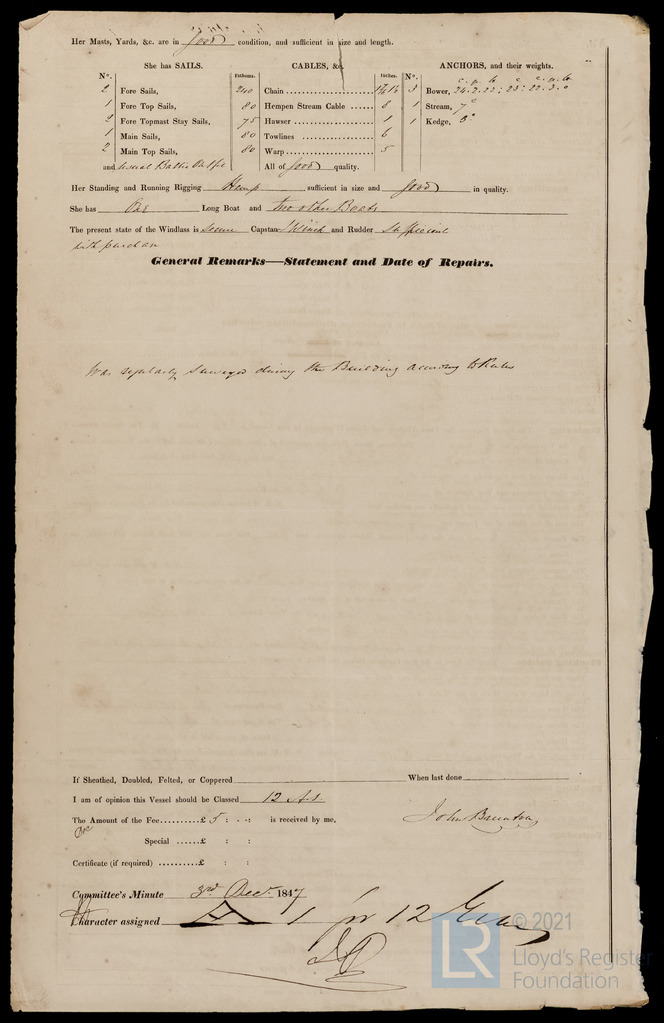 Her Masts, Yards, &c. are in good condition, and sufficient in size and length.
She has SAILS. CABLES, &c. ANCHORS, and their weights.
No. Fathoms. Inches. No.
2 Fore Sails, 240 Chain 3 Bower,
1 Fore Top Sails, 80 Hempen Stream Cable 8 1 Stream, 7c
2 Fore Topmast Stay Sails, 75 Hawser 1 1 Kedge, 3c
1 Main Sails, 80 Towlines 6
2 Main Top Sails, 80 Warp 5
and Usual Baltic Outfit All of good quality.
Her Standing and Running Rigging Hemp sufficient in size and good in quality.
She has One Long Boat and two other Boats
The present state of the Windlass is Secure Capstan Winch and Rudder Sufficient
with purchase
General Remarks—Statement and Date of Repairs.
Was regularly surveyed during the Building according to Rules
If Sheathed, Doubled, Felted, or Coppered When last done
I am of opinion this Vessel should be Classed 12 A1
The Amount of the Fee..........£ 5 : - : - is received by me, John Brunton
Special ......£ : :
Certificate (if required) ..........£ : :
Committee's Minute 3rd Decr. 1847
Character assigned A 1 for 12 Years
© 2021
LR Lloyd's Register
Foundation